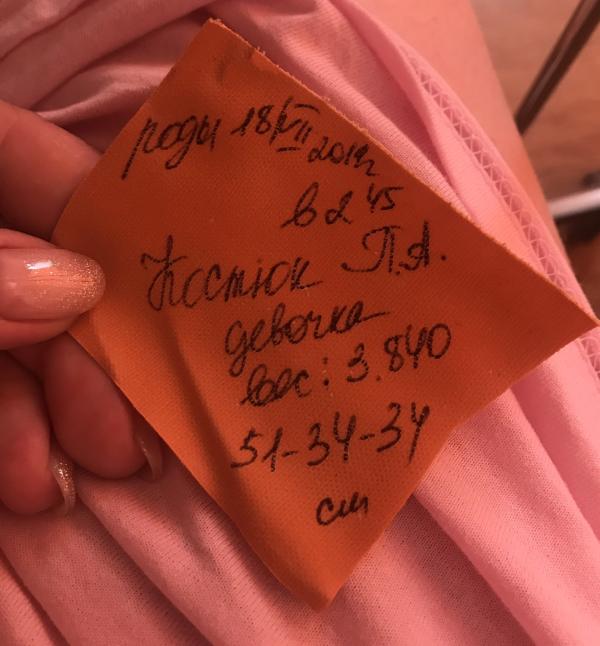 роды 18/VII 2019г.
в 2 45
Костюк П.А.
девочка
вес: 3.840
51-34-34
см